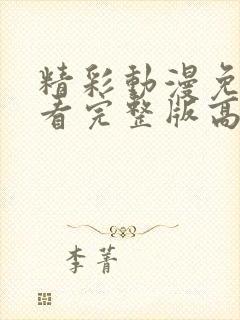 精彩動漫免
看完整版高
李菁